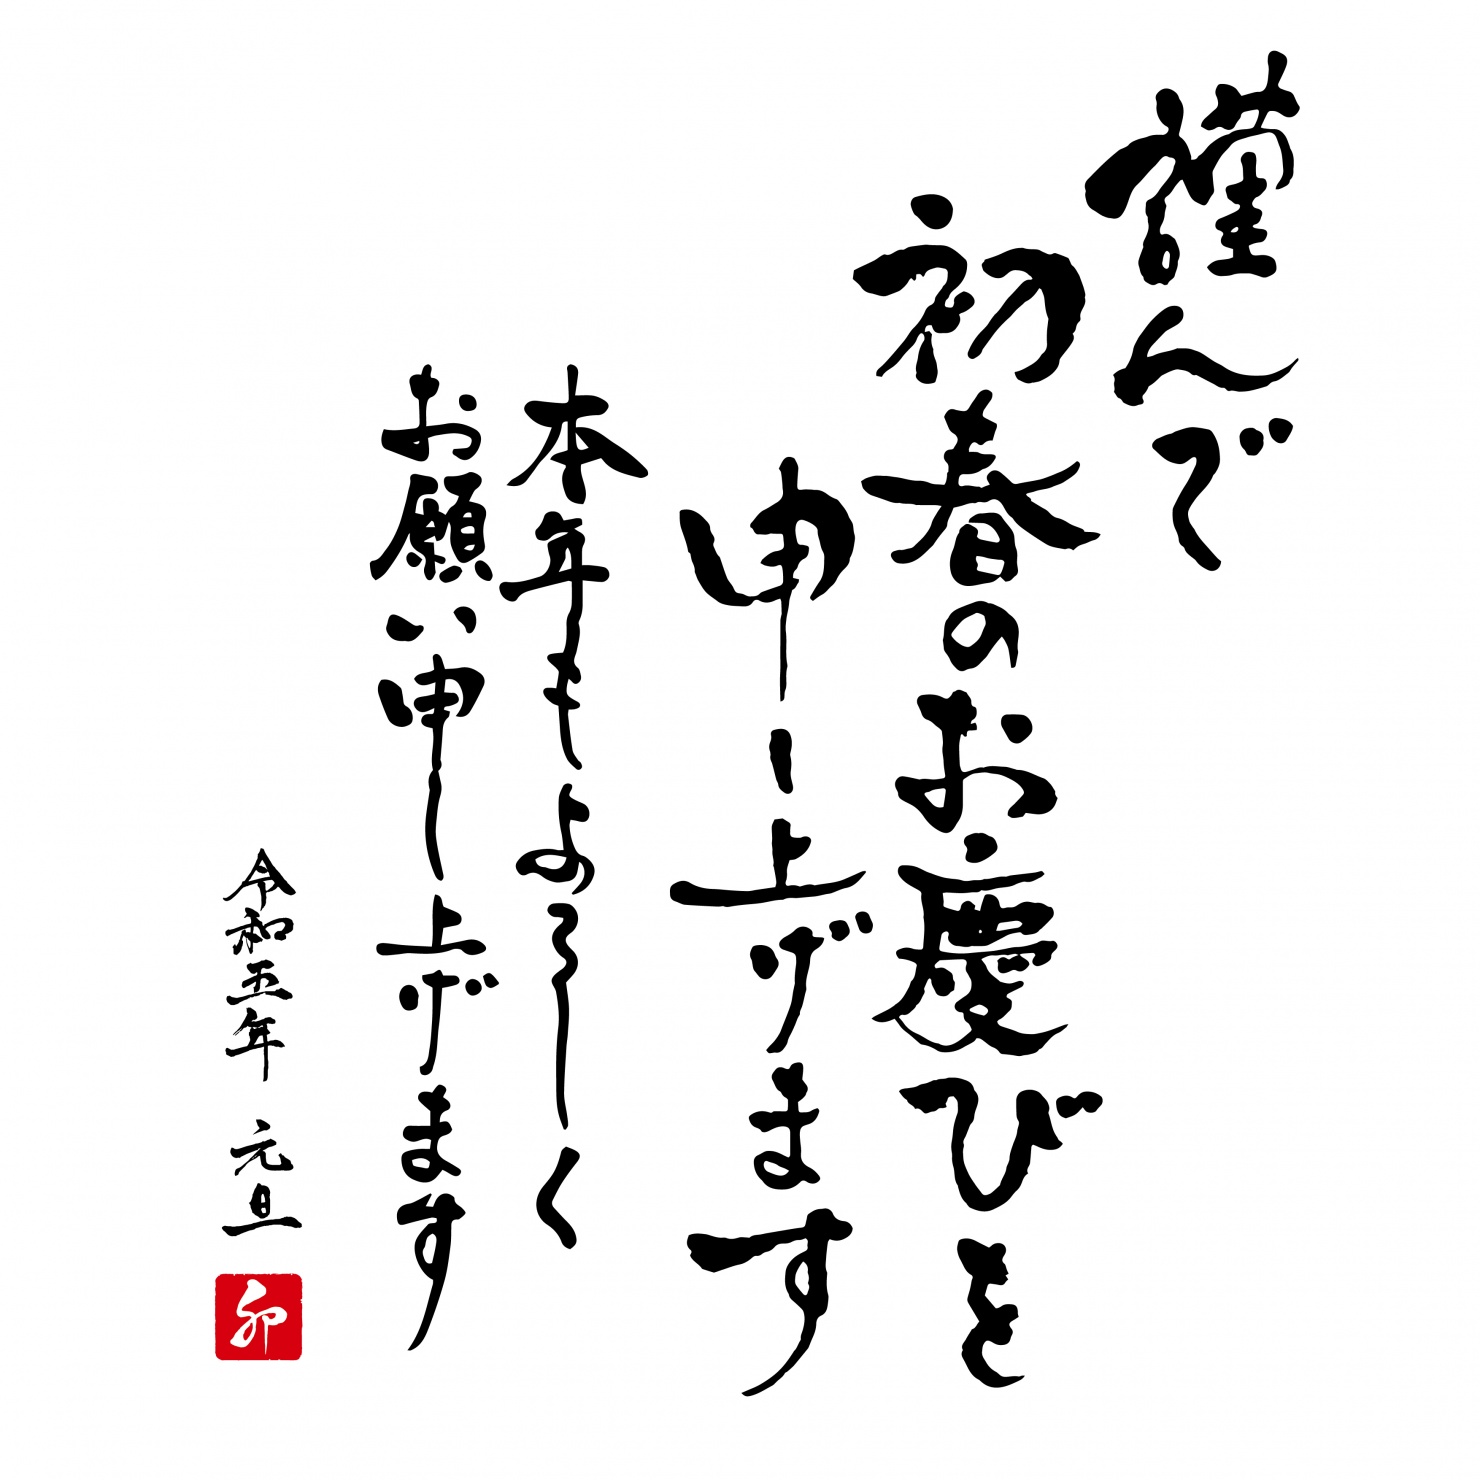 謹んで
初春のお慶びを
申し上げます
本年もよろしく
お願い申し上げます
令和五年 元旦
卯